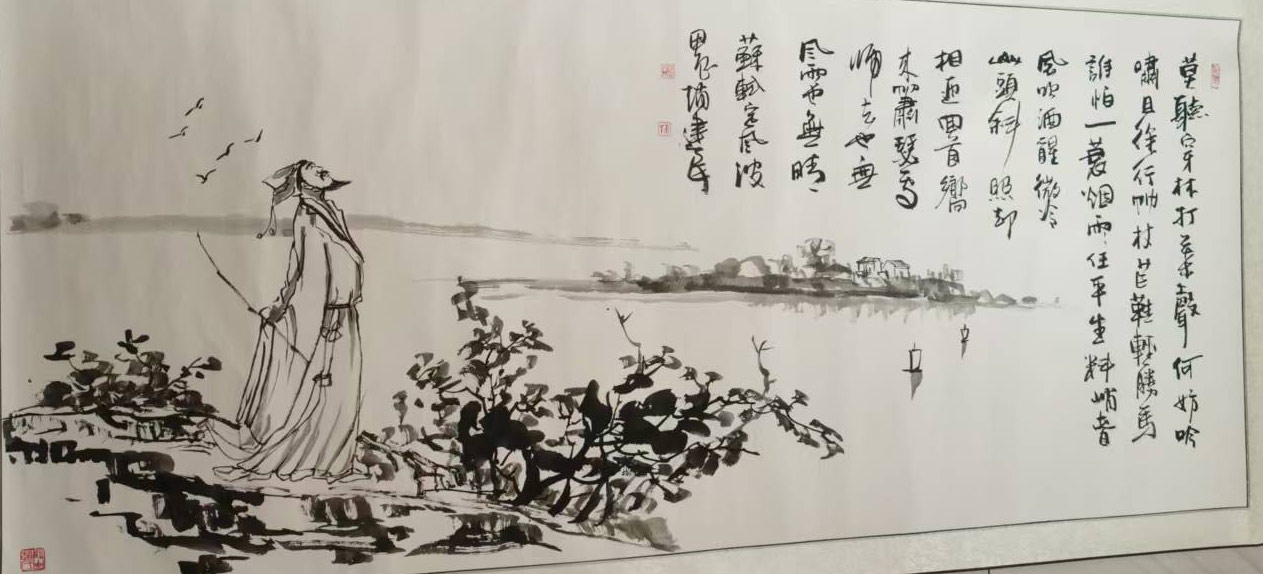 莫聽穿林打葉聲何妨吟
嘯且徐行竹杖芒鞋輕勝馬
誰怕一蓑烟雨任平生料峭春
風吹酒醒微冷
山頭斜照却
相迎回首嚮
来時蕭瑟處
歸去也無
風雨也無晴
蘇軾定風波